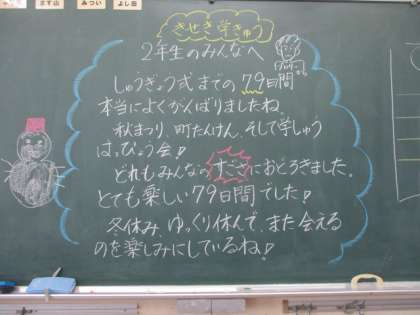 ます山
みつい
よし田
きせき学きゅう
2年生のみんなへ
しゅうぎょう式までの79日間
本当によくがんばりましたね
秋まつり、町たんけん、そして学しゅう
はっぴょう会!
どれもみんなのすごさにおどろきました。
とても楽しい79日間でした!
冬休み、ゆっくり休んで、また会える
のを楽しみにしているね!